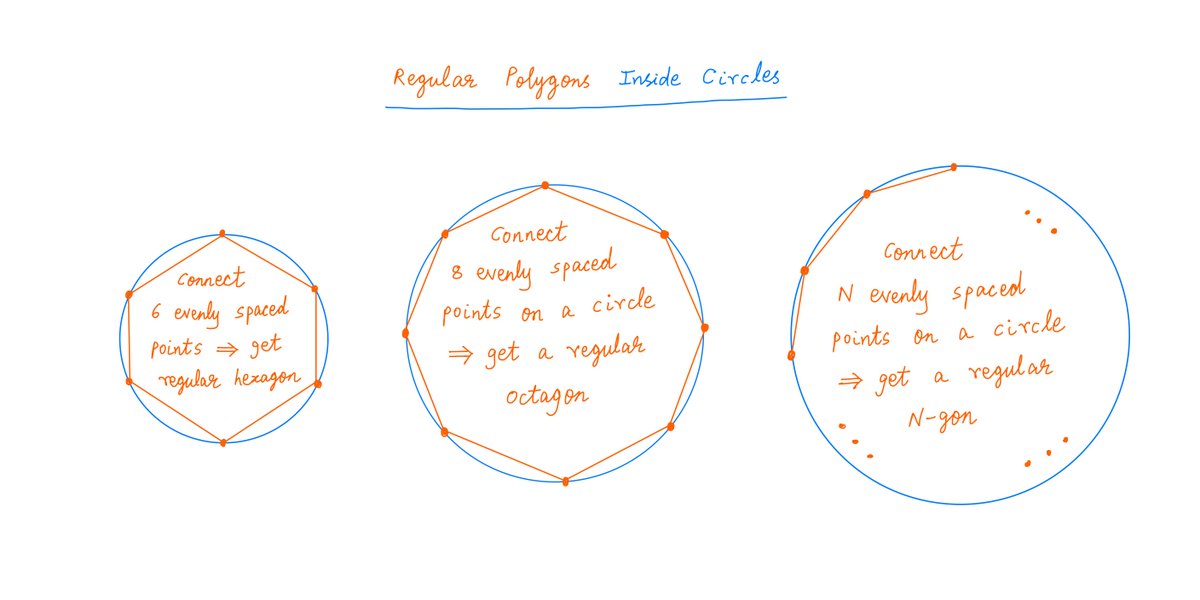 Regular Polygons Inside Circles
Connect
6 evenly spaced
points ⇒ get
regular hexagon
Connect
8 evenly spaced
points on a circle
⇒ get a regular
octagon
Connect
N evenly spaced
points on a circle
⇒ get a regular
N-gon